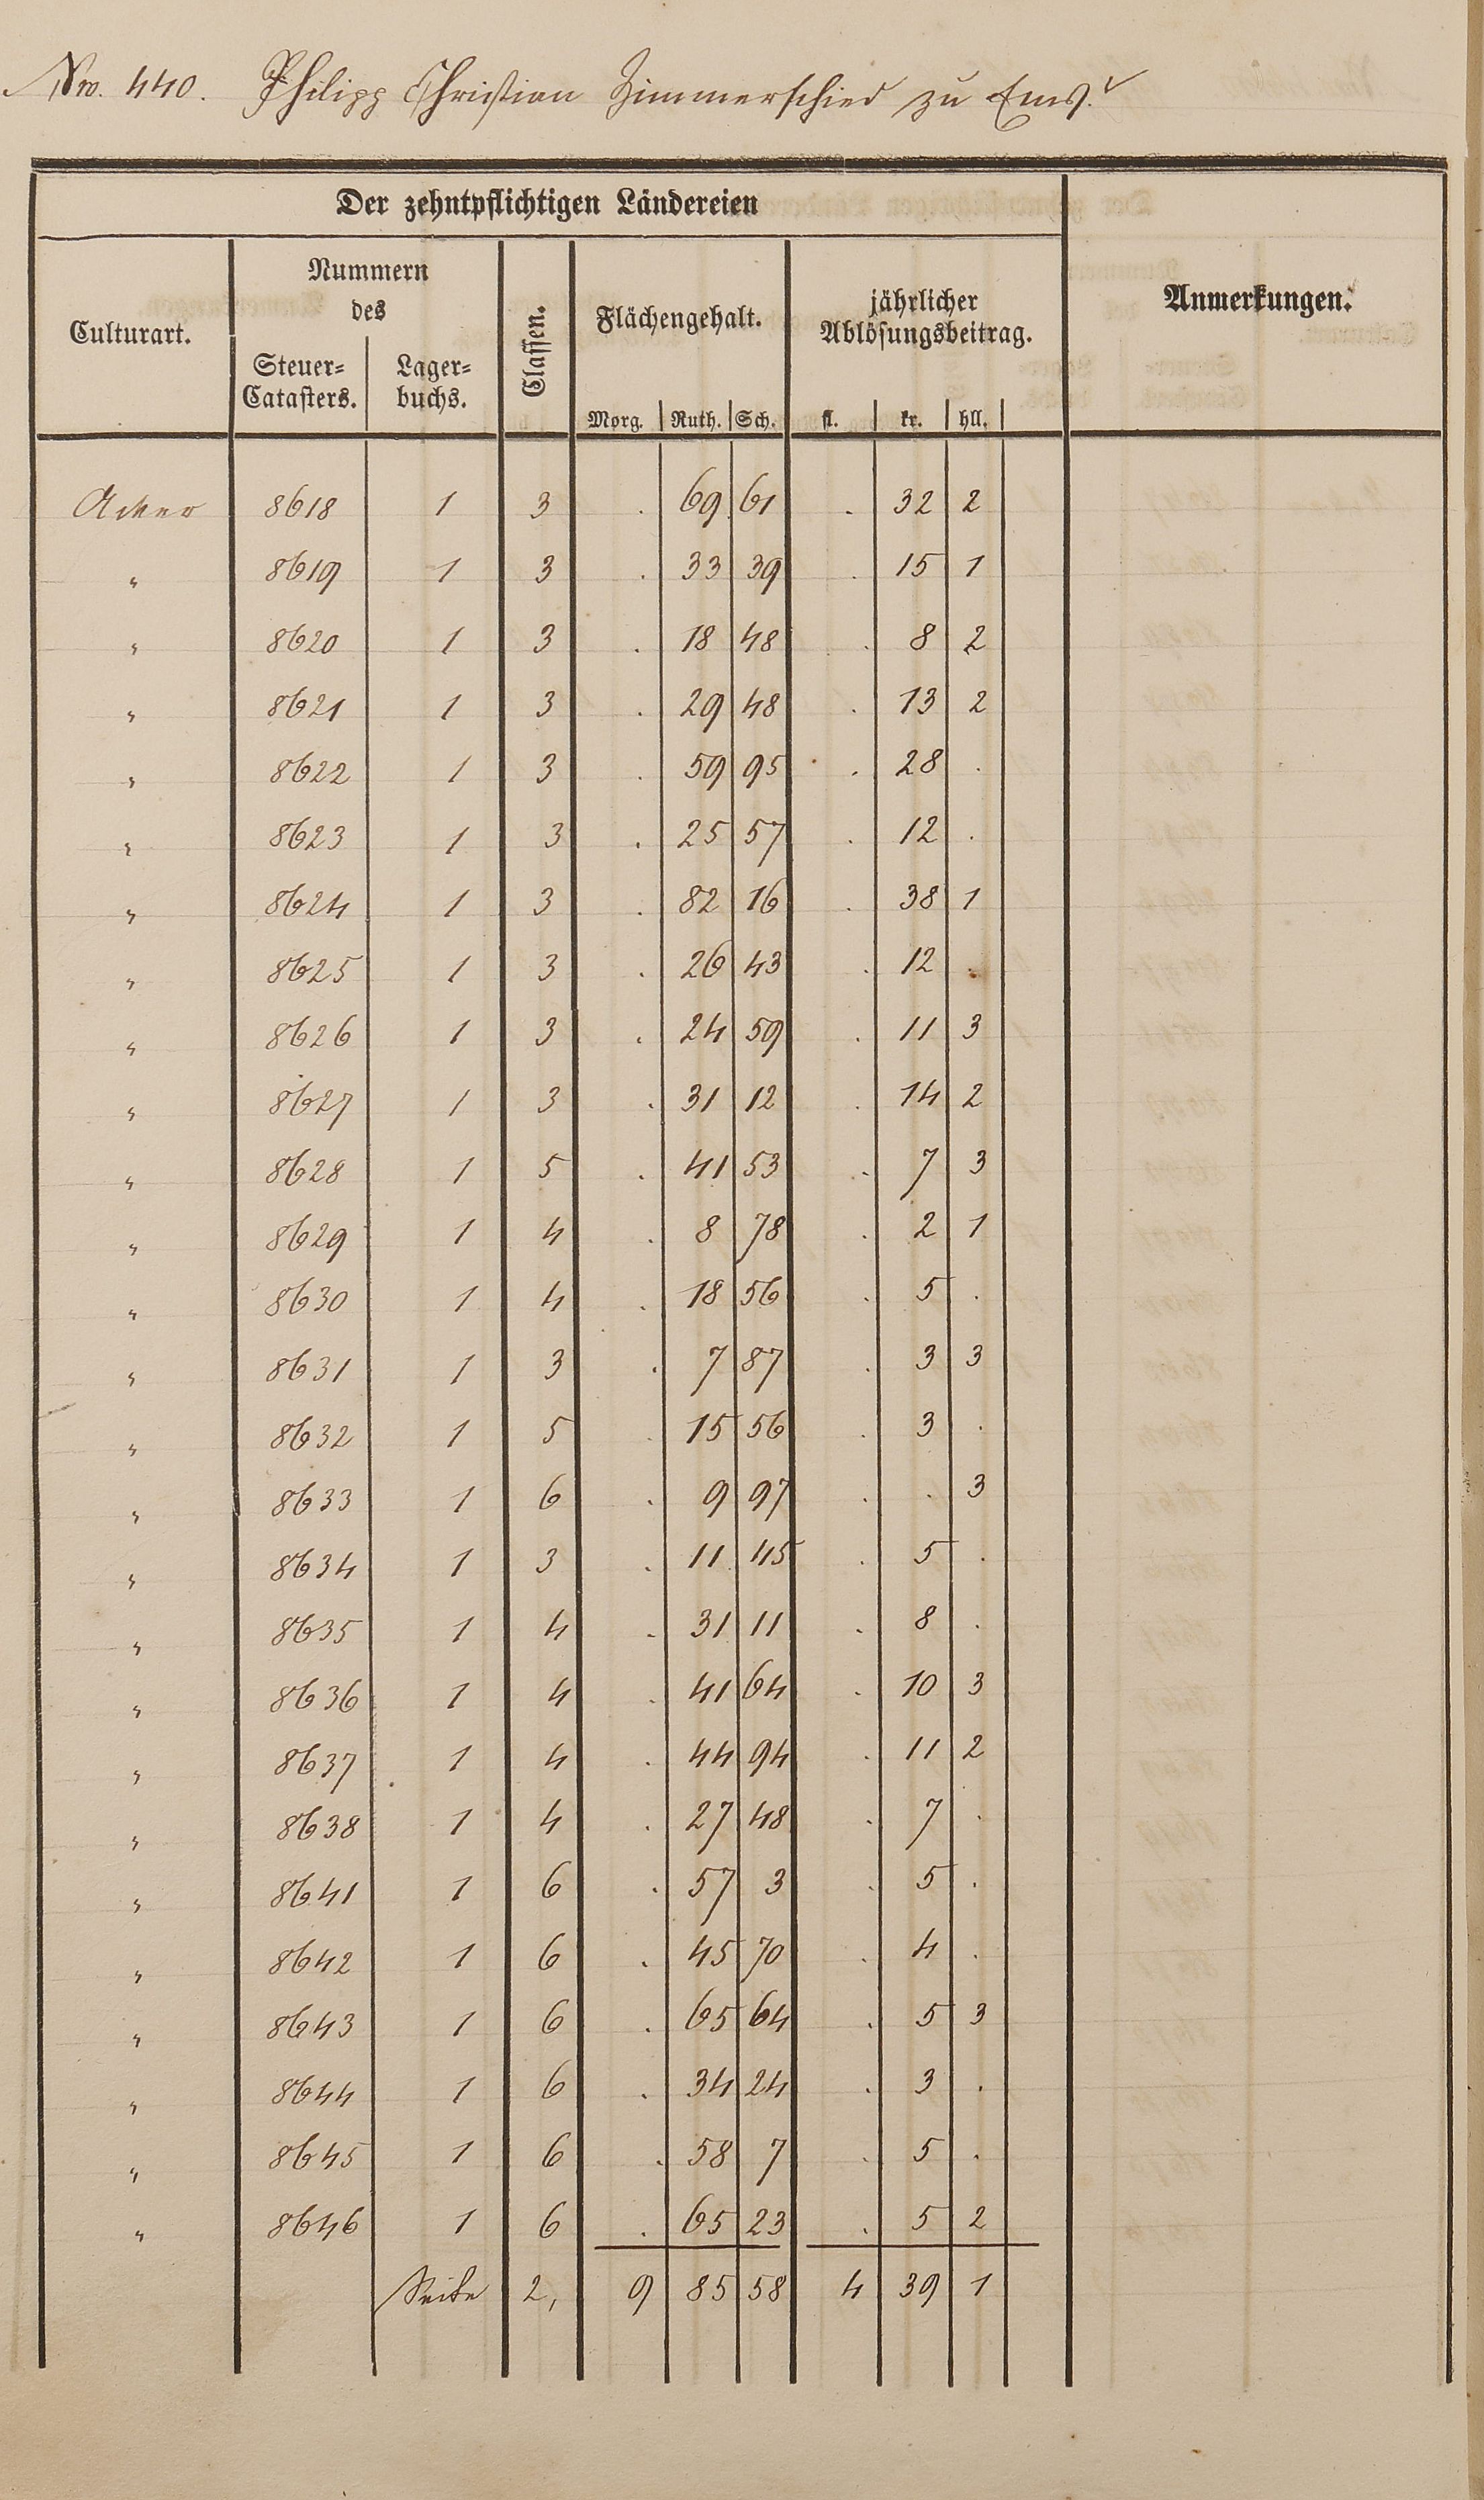 Nro. 440. Philipp Christian Zimmerschied zu Ems.
Der zehntpflichtigen Ländereien
Culturart. Nummern des Steuer-Catasters. Lager-buchs. Classen. Flächengehalt. Morg. Ruth. Sch. jährlicher Ablösungsbeitrag. fl. kr. hll. Anmerkungen.
Acker 8618 1 3 . 69 61 . 32 2
" 8619 1 3 . 33 39 . 15 1
" 8620 1 3 . 18 48 . 8 2
" 8621 1 3 . 29 48 . 13 2
" 8622 1 3 . 59 95 . 28 .
" 8623 1 3 . 25 57 . 12 .
" 8624 1 3 . 82 16 . 38 1
" 8625 1 3 . 26 43 . 12 .
" 8626 1 3 . 24 59 . 11 3
" 8627 1 3 . 31 12 . 14 2
" 8628 1 5 . 41 53 . 7 3
" 8629 1 4 . 8 78 . 2 1
" 8630 1 4 . 18 56 . 5 .
" 8631 1 3 . 7 87 . 3 3
" 8632 1 5 . 15 56 . 3 .
" 8633 1 6 . 9 97 . . 3
" 8634 1 3 . 11 45 . 5 .
" 8635 1 4 . 31 11 . 8 .
" 8636 1 4 . 41 64 . 10 3
" 8637 1 4 . 44 94 . 11 2
" 8638 1 4 . 27 48 . 7 .
" 8641 1 6 . 57 3 . 5 .
" 8642 1 6 . 45 70 . 4 .
" 8643 1 6 . 65 64 . 5 3
" 8644 1 6 . 34 24 . 3 .
" 8645 1 6 . 58 7 . 5 .
" 8646 1 6 . 65 23 . 5 2
Seite 2, 9 85 58 4 39 1